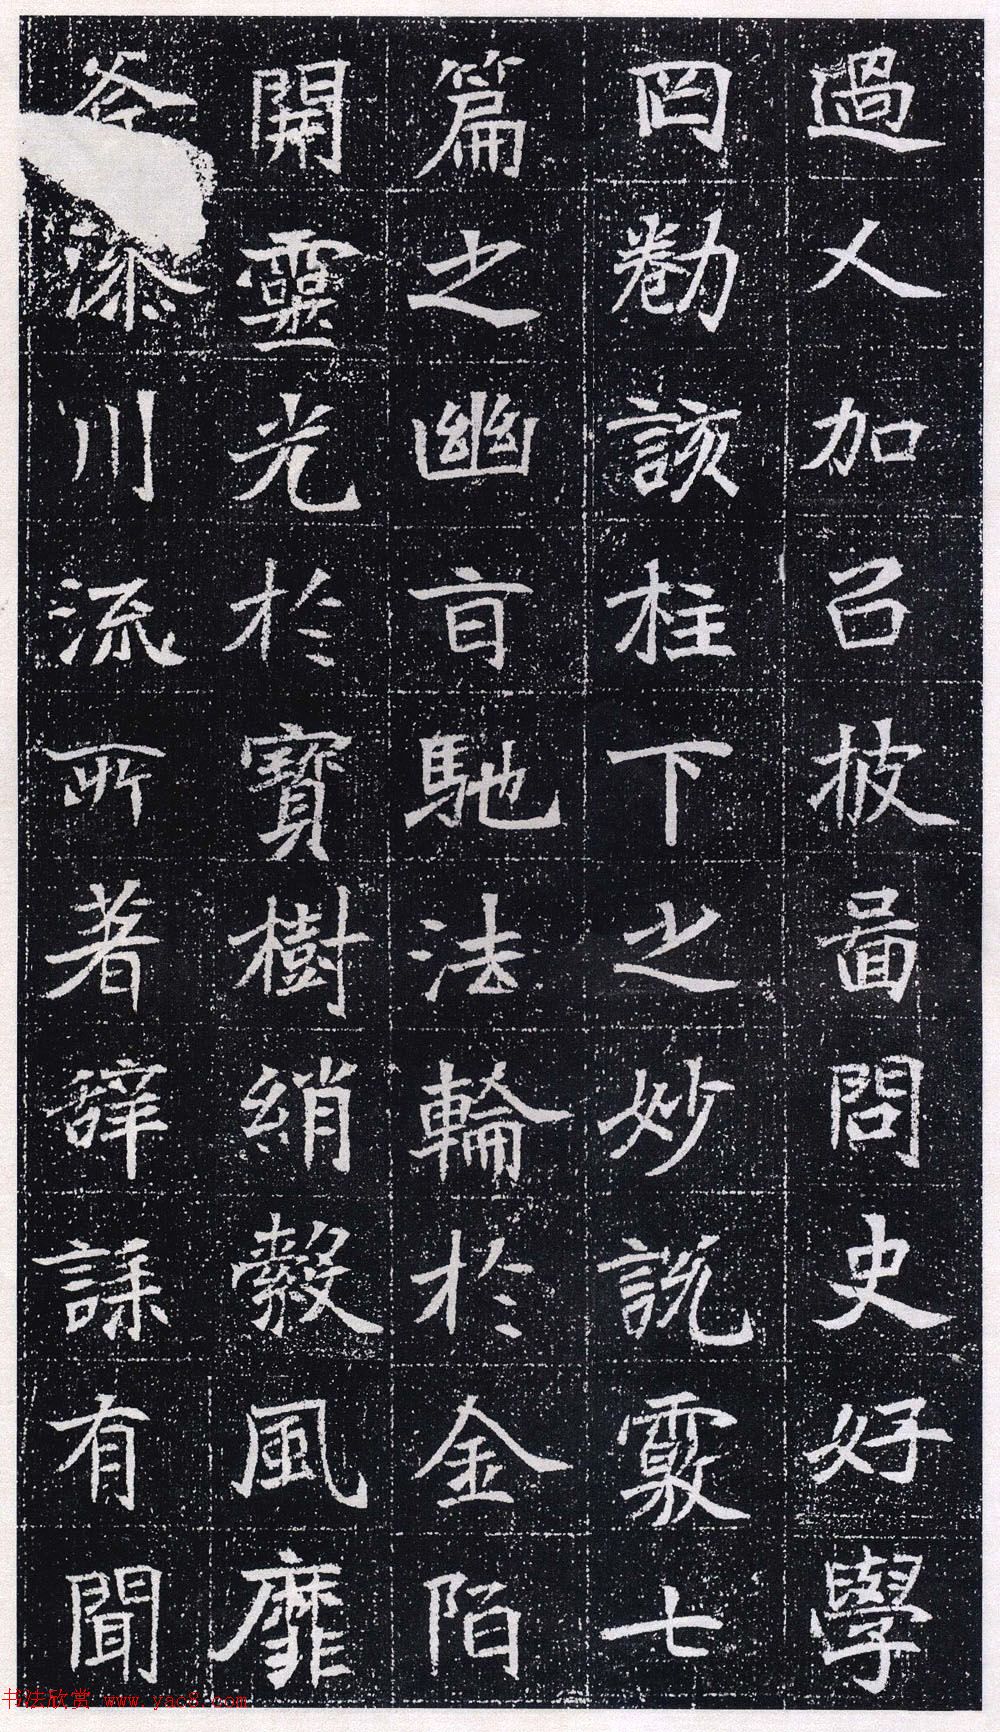 過人加㠯披圖問史好學
罔勌該柱下之妙說覈七
篇之幽旨馳法輪於金陌
開靈光於寶樹綃縠風靡
川流所著辭謀有聞
书法欣赏 www.yac8.com